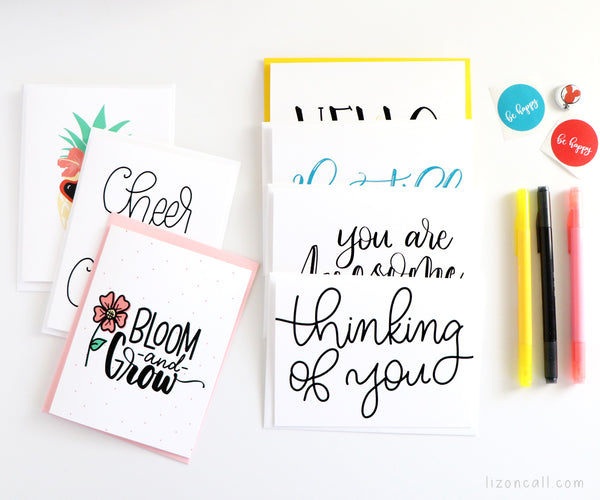 Cheer
BLOOM
-and-
Grow
HELLO
you are
Awesome
thinking
of you
be happy
be happy
lizoncall.com